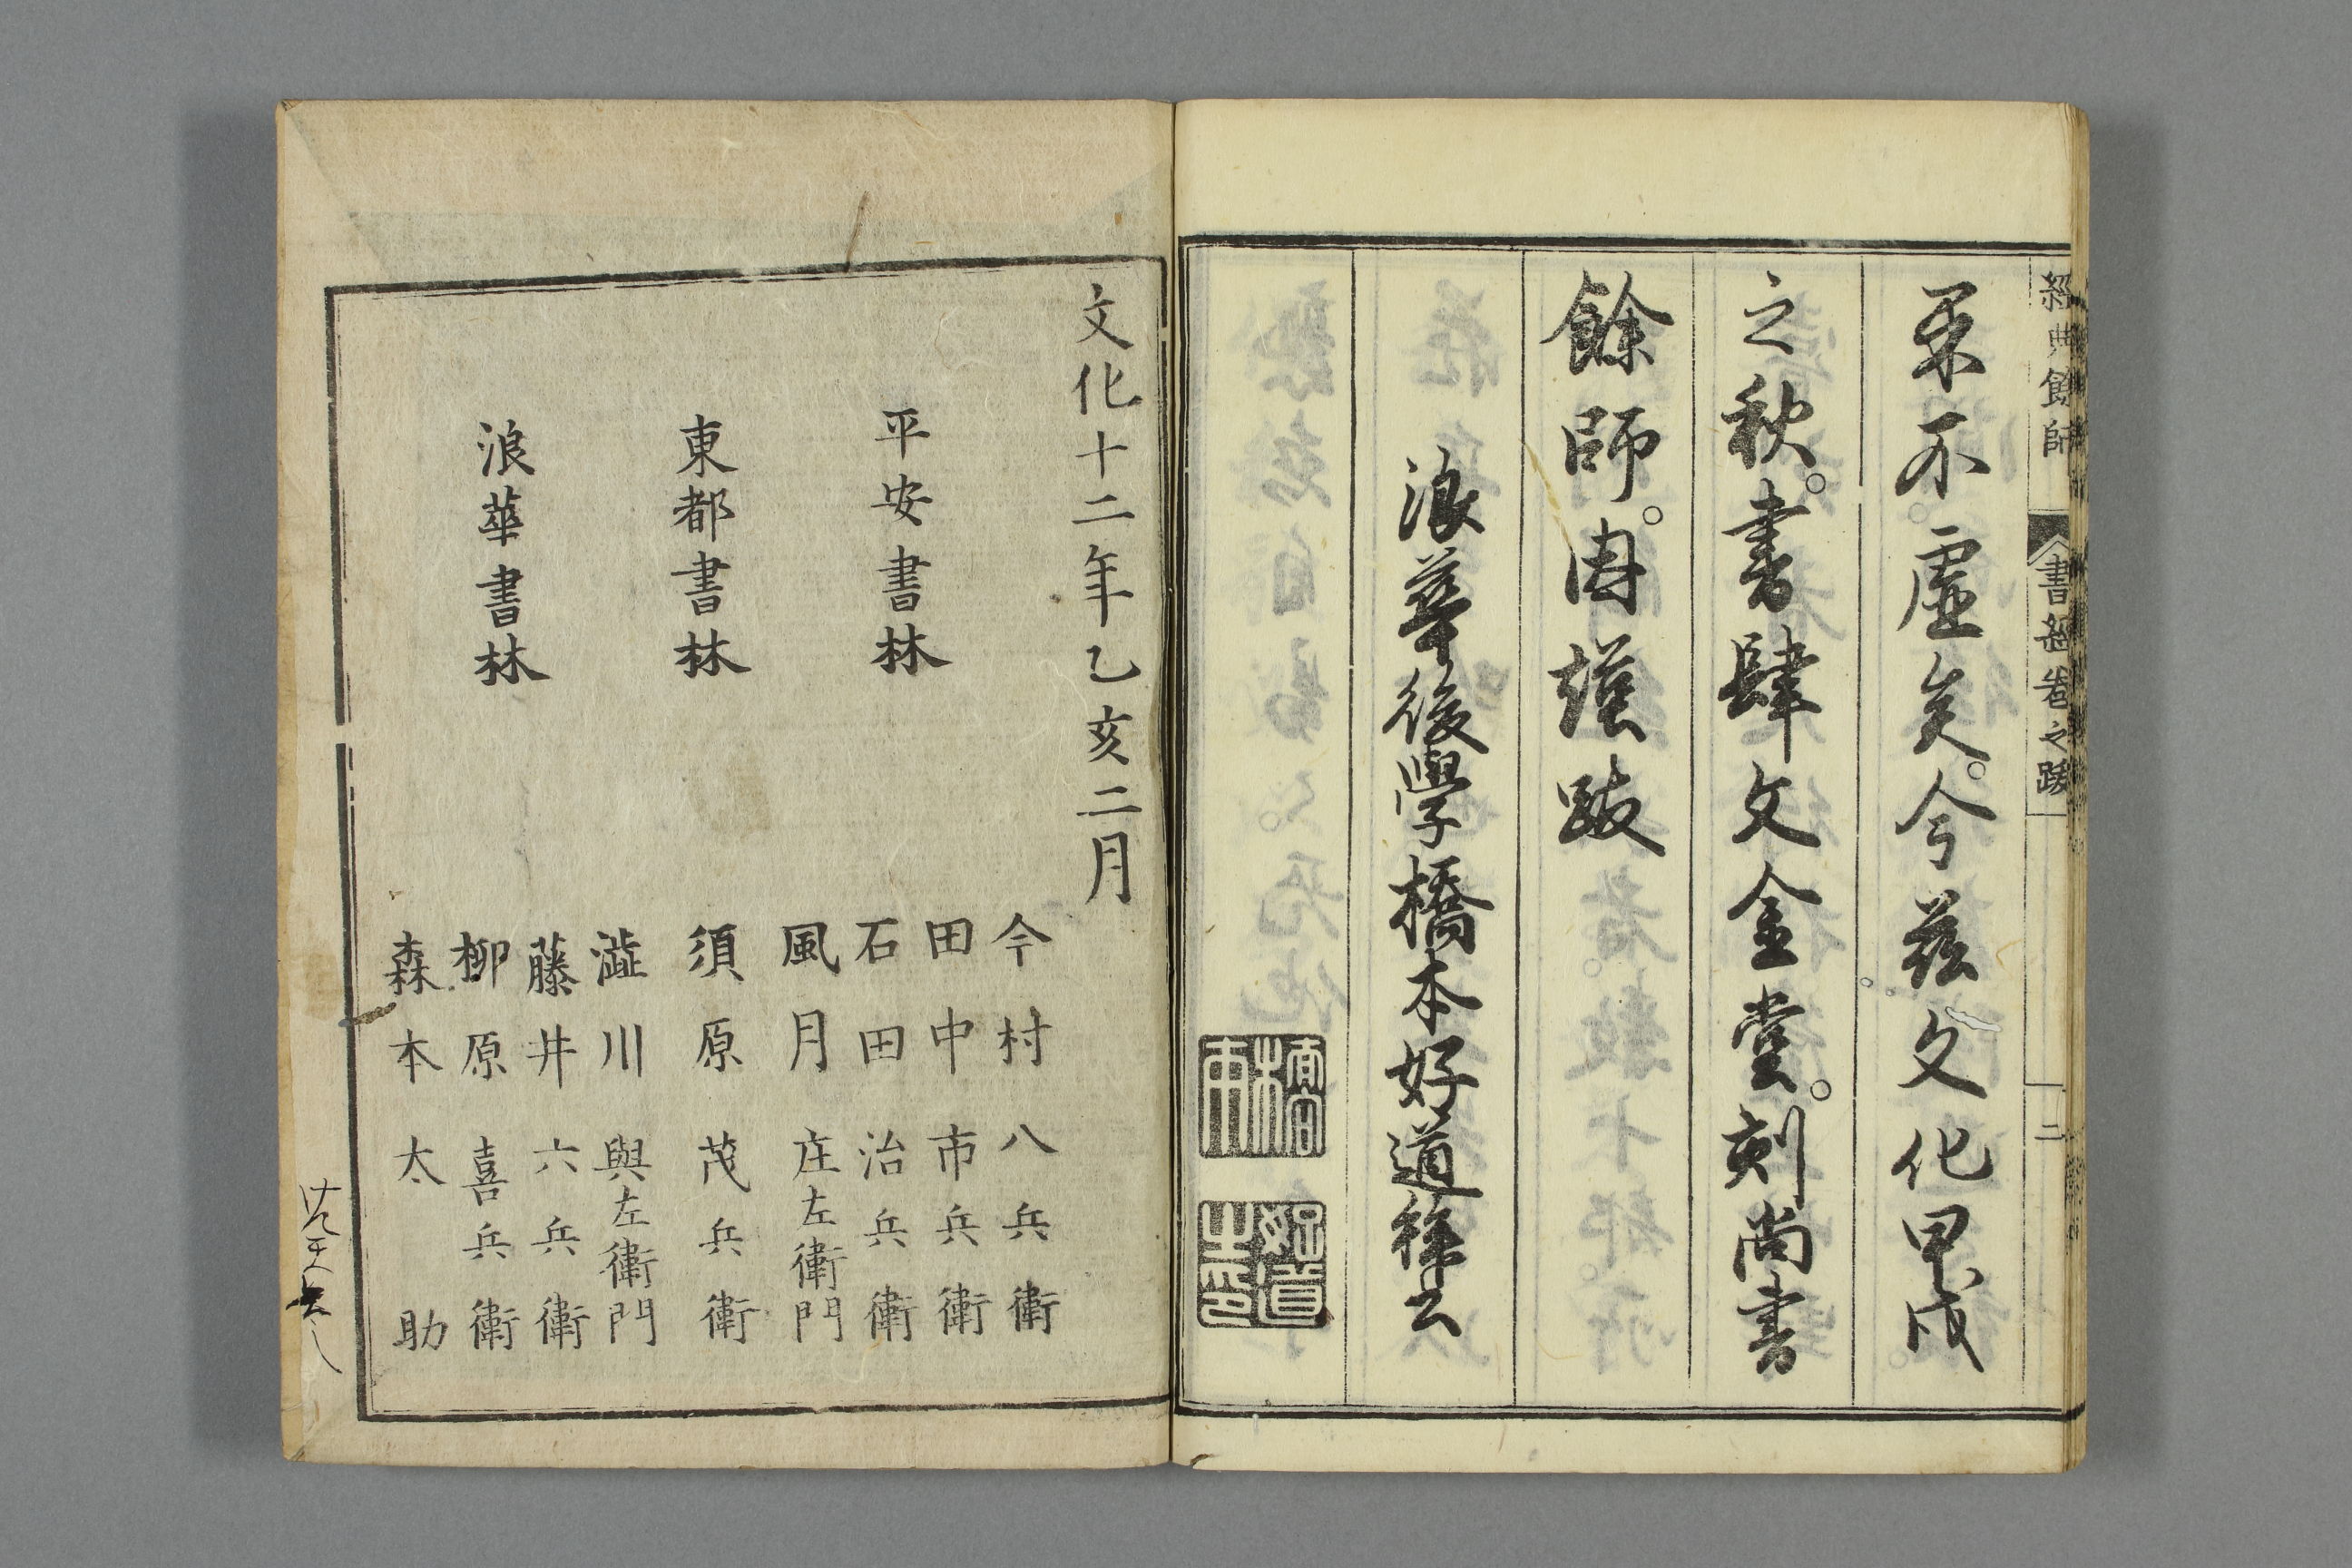 經典餘師
書經卷之跋
二
果不虛矣。今茲文化甲戌
之秋。書肆文金堂。刻尚書
餘師。因謹跋
浪華後學橋本好道祥云
文化十二年乙亥二月
平安書林
今村八兵衛
田中市兵衛
石田治兵衛
風月庄左衛門
東都書林
須原茂兵衛
浪華書林
澁川與左衛門
藤井六兵衛
柳原喜兵衛
森本太助